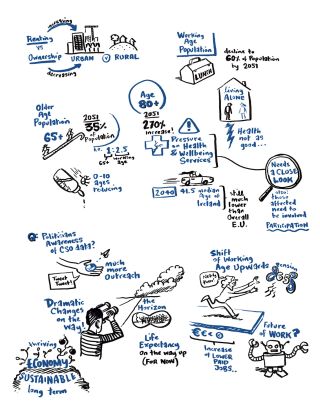 increasing
Renting
vs
Ownership
decreasing
URBAN
v
RURAL
Working
Age
Population
LUNCH
decline to
60% of Population
by 2051
Living
ALONE
Health
not as
good...
Older
Age
Population
65+
2051
35%
of
Population
i.e. 1:2.5
working
age
Age
80+
2051
270%
increase!
Pressure
on Health
& Wellbeing
Services
0-10
ages
reducing
2040
41.5 median
Age of
Ireland
still
much
lower
than
overall
E.U.
Needs
A CLOSE
LOOK
also:
those
affected
need to
be involved
PARTICIPATION
Q: Politicians
Awareness
of CSO data?
Tweet
Tweet!
much
more
Outreach
Dramatic
Changes
on the
Way!
the
Horizon
Life
Expectancy
on the way up
(FOR NOW)
Thriving
ECONOMY
SUSTAINABLE
long term
Shift
of Working
Age Upwards
Pension
€€€
Increase
of LOWER
PAID
JOBS...
Future
of WORK?